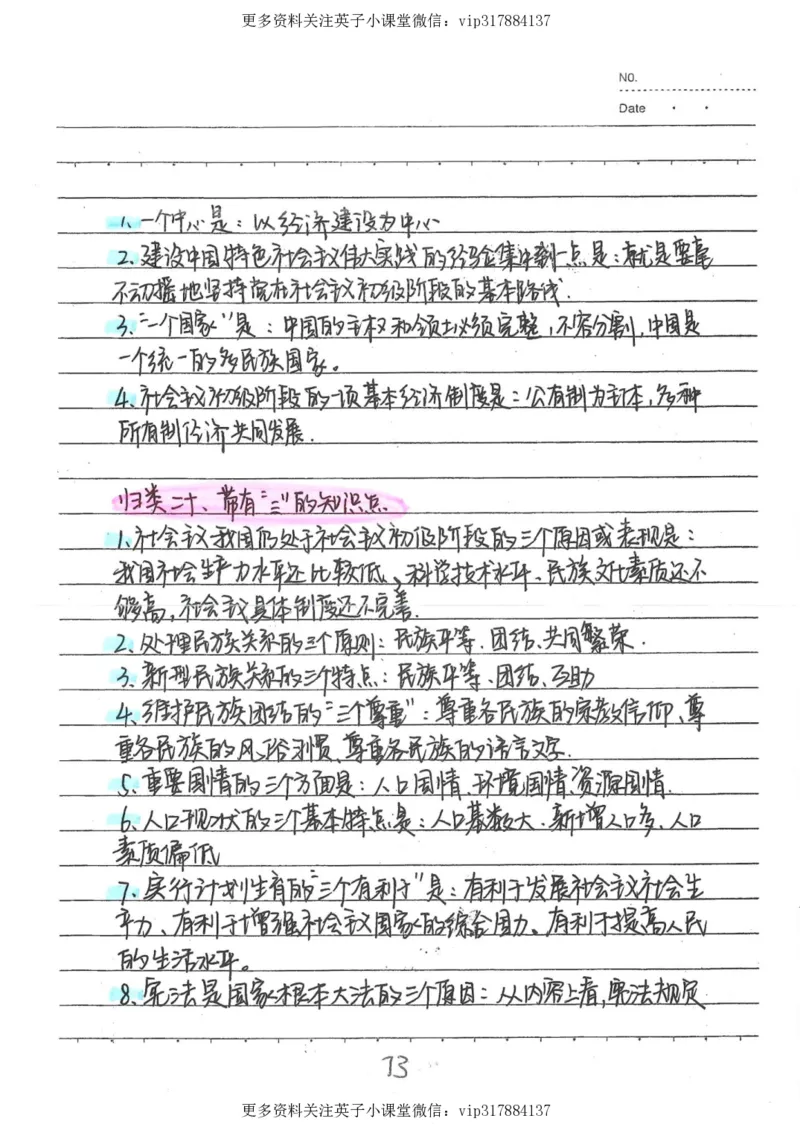 更多资料关注英子小课堂微信：vip317884137
NO.
Date
1、一个中心是：以经济建设为中心
2、建设中国特色社会主义伟大实践的经验集中到一点是：就是要毫
不动摇地坚持党在社会主义初级阶段的基本路线.
3、“一个国家”是：中国的主权和领土必须完整，不容分割，中国是
一个统一的多民族国家。
4、社会主义初级阶段的一项基本经济制度是：公有制为主体，多种
所有制经济共同发展.
归类二十、带有“三”的知识点
1、社会主义我国仍处于社会主义初级阶段的三个原因或表现是：
我国社会生产力水平还比较低、科学技术水平、民族文化素质还不
够高，社会主义具体制度还不完善.
2、处理民族关系的三个原则：民族平等、团结、共同繁荣.
3、新型民族关系的三个特点：民族平等、团结、互助
4、维护民族团结的“三个尊重”：尊重各民族的宗教信仰、尊
重各民族的风俗习惯、尊重各民族的语言文字.
5、重要国情的三个方面是：人口国情、环境国情、资源国情.
6、人口现状的三个基本特点是：人口基数大、新增人口多、人口
素质偏低
7、实行计划生育的“三个有利于”是：有利于发展社会主义社会生
产力、有利于增强社会主义国家的综合国力、有利于提高人民
的生活水平。
8、宪法是国家根本大法的三个原因：从内容上看，宪法规定
73
更多资料关注英子小课堂微信：vip317884137